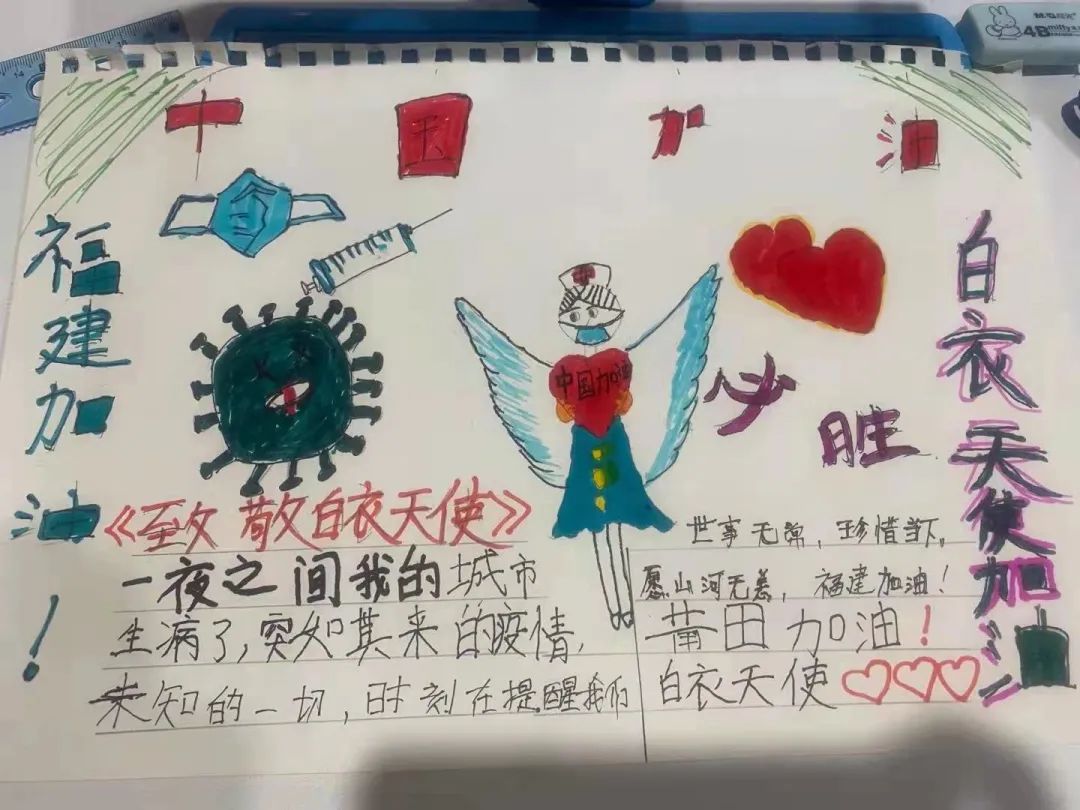 中国加油
福建加油！
中国加油
必胜
白衣天使加油
《致敬白衣天使》
一夜之间我的城市
生病了，突如其来的疫情，
未知的一切，时刻在提醒我们
世事无常，珍惜当下。
愿山河无恙，福建加油！
莆田加油！
白衣天使♡♡♡
4B
miffy